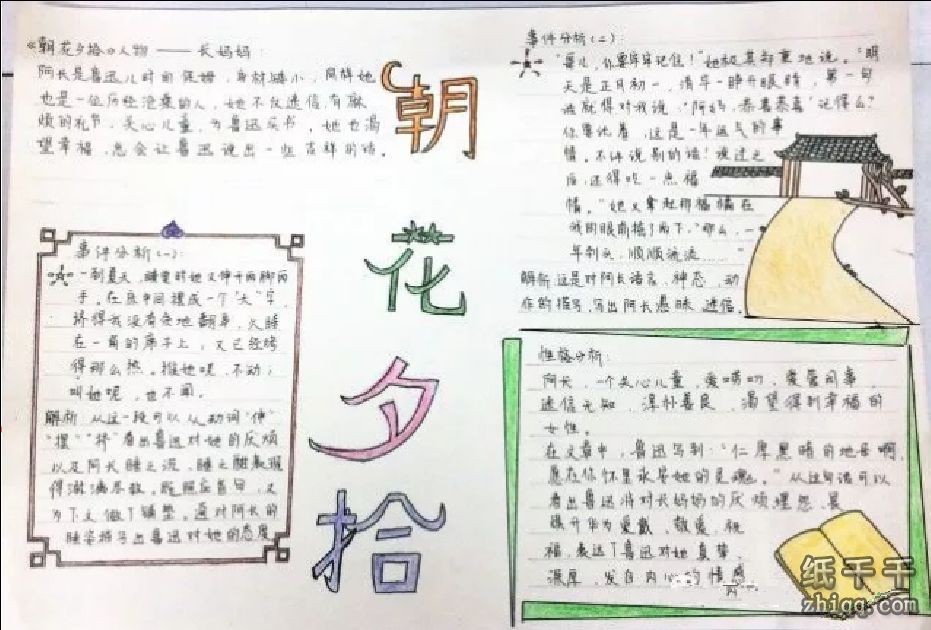 《朝花夕拾》人物——长妈妈:
阿长是鲁迅儿时的保姆，身材矮小，同样她
也是一位历经沧桑的人，她不仅迷信，有麻
烦的礼节，关心儿童，为鲁迅买书，她也渴
望幸福，总会让鲁迅说出一些吉祥的话。
朝
花
夕
拾
事件分析(一):
一到夏天，睡觉时她又伸开两脚两
手。在床中间摆成一个"大"字，
挤得我没有余地翻身，久睡
在一角的席子上，又已经烤
得那么热。推她呢，不动；
叫她呢，也不闻。
解析:从这一段可以从动词"伸"
"摆""挤"看出鲁迅对她的厌烦
以及阿长睡之沉，睡之
得淋漓尽致。既照应首句，又
为下文做了铺垫。通过对阿长的
睡姿描写出鲁迅对她的态度
事件分析(二):
"哥儿，你牢牢记住！"她极其郑重地说。"明
天是正月初一，清早一睁开眼睛，第一句
话就得对我说："阿妈，恭喜恭喜"记得么？
你要记着，这是一年运气的事
情。不许说别的话！说过之
后，还得吃一点福
橘。"她又拿起那福橘在
我的眼前摇了两下，"那么，一
年到头，顺顺流流……"
解析:这是对阿长语言、神态、动
作的描写，写出阿长愚昧、迷信。
性格分析:
阿长，一个关心儿童，爱唠叨，爱管闲事，
迷信无知，淳朴善良，渴望得到幸福的
女性。
在文章中，鲁迅写到:"仁厚黑暗的地母啊，
愿在你怀里永安她的灵魂。"从这句话可以
看出鲁迅将对长妈妈的厌烦埋怨，
升华为爱戴、敬爱、祝
福，表达了鲁迅对她真挚、
深厚、发自内心的情感
纸千千
zhiqq.com